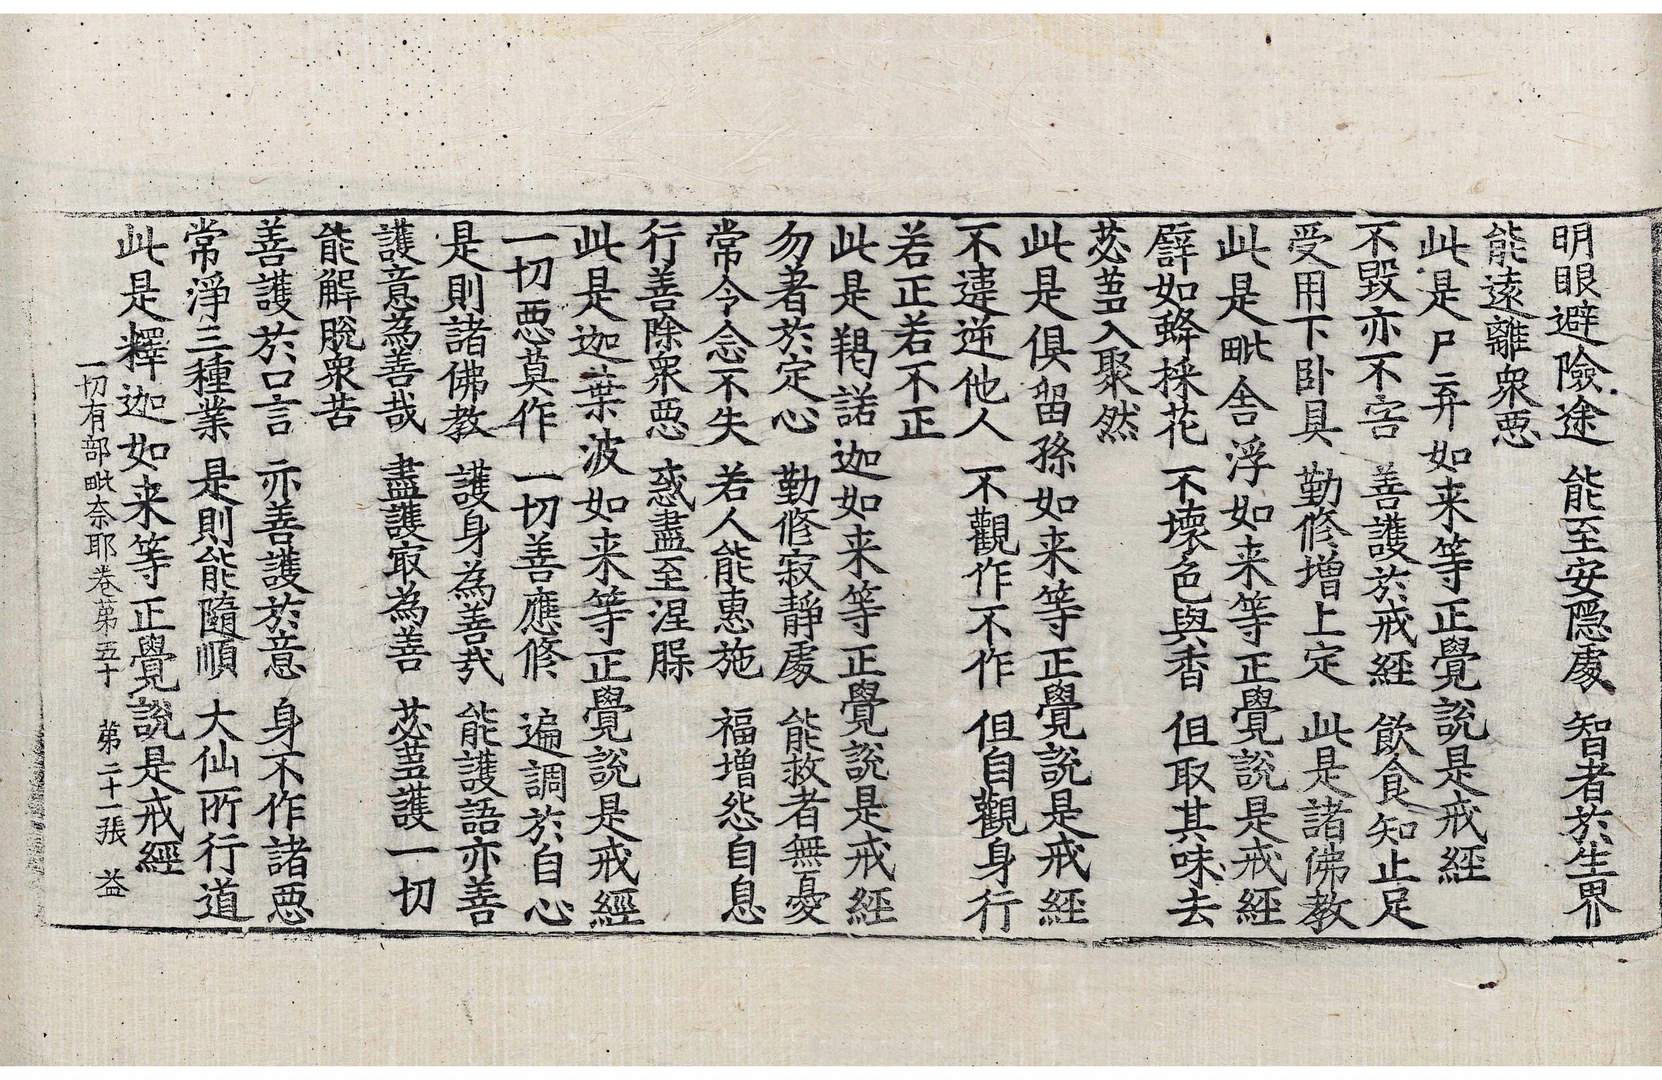 明眼避險途　能至安隱處　智者於生界
能遠離衆惡
此是尸弃如来等正覺說是戒経
不毀亦不害　善護於戒經　飲食知止足
受用下卧具　勤修增上定　此是諸佛教
此是毗舍浮如来等正覺說是戒経
譬如蜂採花　不壞色與香　但取其味去
苾蒭入聚然
此是俱留孫如来等正覺說是戒経
不違逆他人　不觀作不作　但自觀身行
若正若不正
此是羯諾迦如来等正覺說是戒経
勿著於定心　勤修寂靜處　能救者無憂
常令念不失　若人能惠施　福增怨自息
行善除衆惡　惑盡至涅槃
此是迦葉波如来等正覺說是戒經
一切惡莫作　一切善應修　遍調於自心
是則諸佛教　護身為善哉　能護語亦善
護意為善哉　盡護寂為善　苾蒭護一切
能解脫衆苦
善護於口言　亦善護於意　身不作諸惡
常淨三種業　是則能隨順　大仙所行道
此是釋迦如来等正覺說是戒經
一切有部毗奈耶卷第五十　第二十一張　益